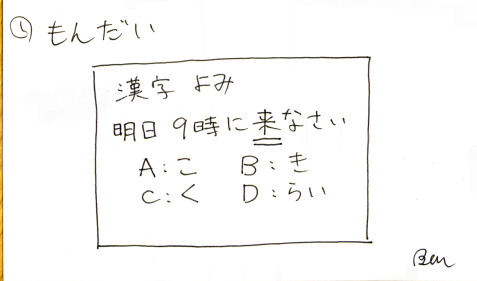 ① もんだい
漢字 よみ
明日 9時に来なさい
A:こ B:き
C:く D:らい
Ben